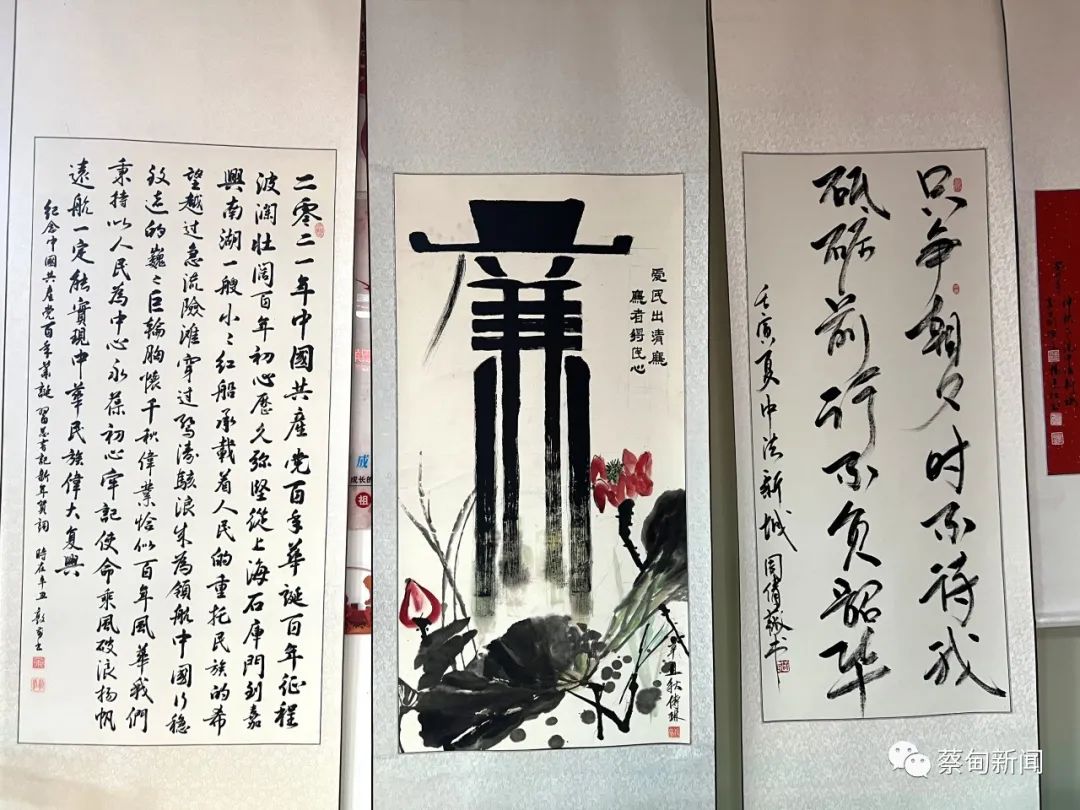 二零二一年中國共產党百年華誕百年征程
波瀾壯阔百年初心歷久弥堅從上海石庫門到嘉
興南湖一艘小々红船承载着人民的重托民族的希
望越过急流險滩穿过驚涛駭浪成為領航中國行稳
致远的巍々巨輪胸懷千秋偉業恰似百年風華我們
秉持以人民為中心永葆初心牢記使命乘風破浪揚帆
遠航一定能實現中華民族偉大复興
纪念中國共產党百年華誕 習总书记新年贺词 時在辛丑
廉
愛民出清廉
廉者得民心
辛丑秋
只争朝夕时不待我
砥砺前行不负韶华
壬寅夏中法新城周倩书
成长的
祖
蔡甸新闻